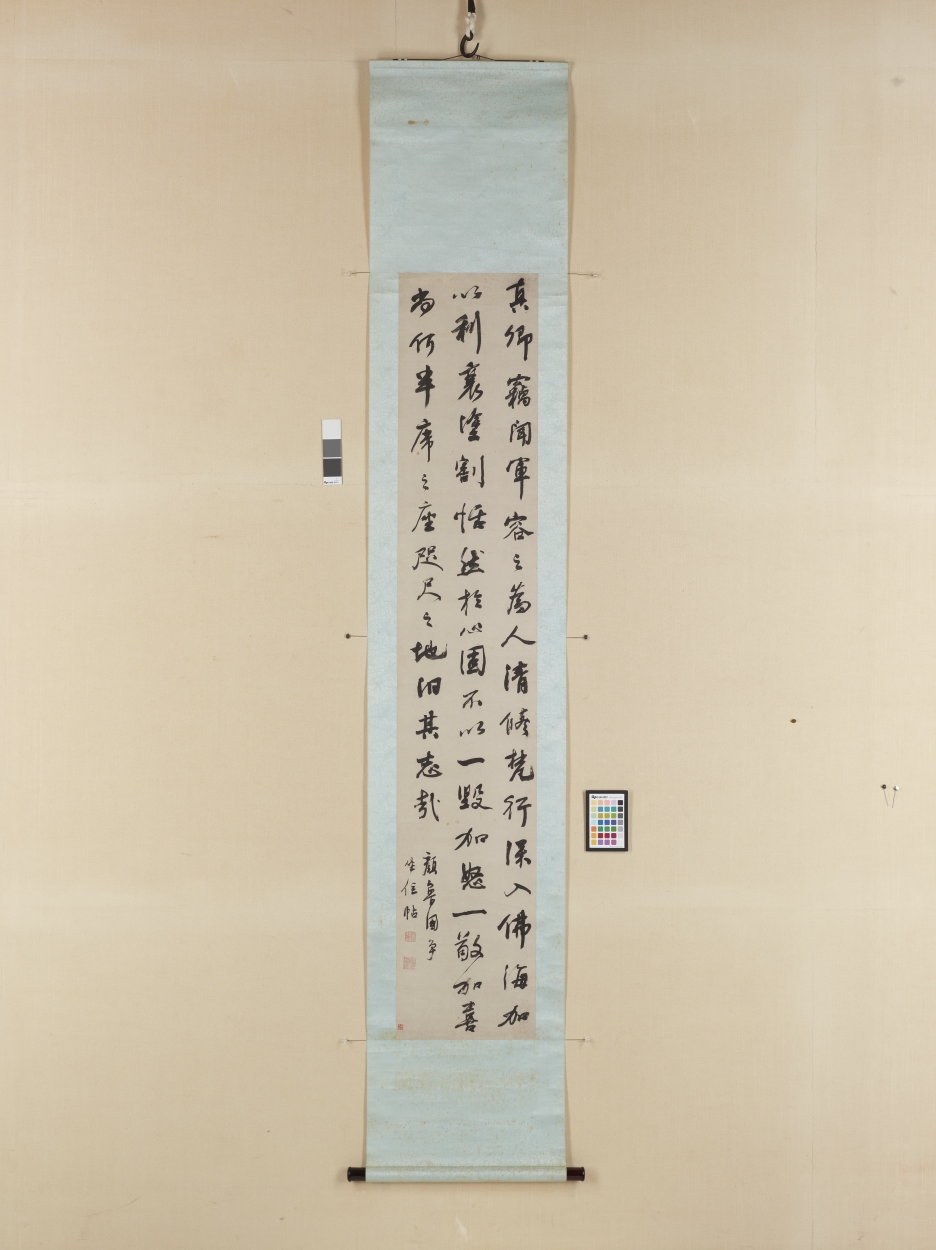 真卿竊聞軍容之為人清修梵行深入佛海加
以利衰塗割恬然於心固不以一毀加怒一敬加喜
尚何半席之座咫尺之地汩其志哉
顏魯國爭
坐位帖